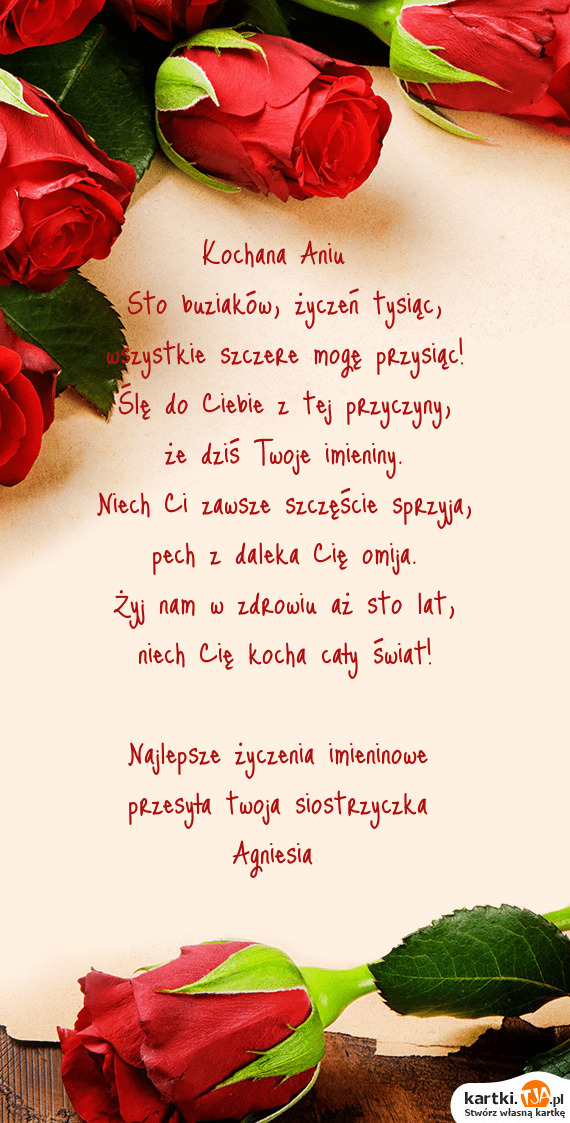 Kochana Aniu
Sto buziaków, życzeń tysiąc,
wszystkie szczere mogę przysiąc!
Ślę do Ciebie z tej przyczyny,
że dziś Twoje imieniny.
Niech Ci zawsze szczęście sprzyja,
pech z daleka Cię omija.
Żyj nam w zdrowiu aż sto lat,
niech Cię kocha cały świat!
Najlepsze życzenia imieninowe
przesyła twoja siostrzyczka
Agniesia
kartki.TJA.pl
Stwórz własną kartkę